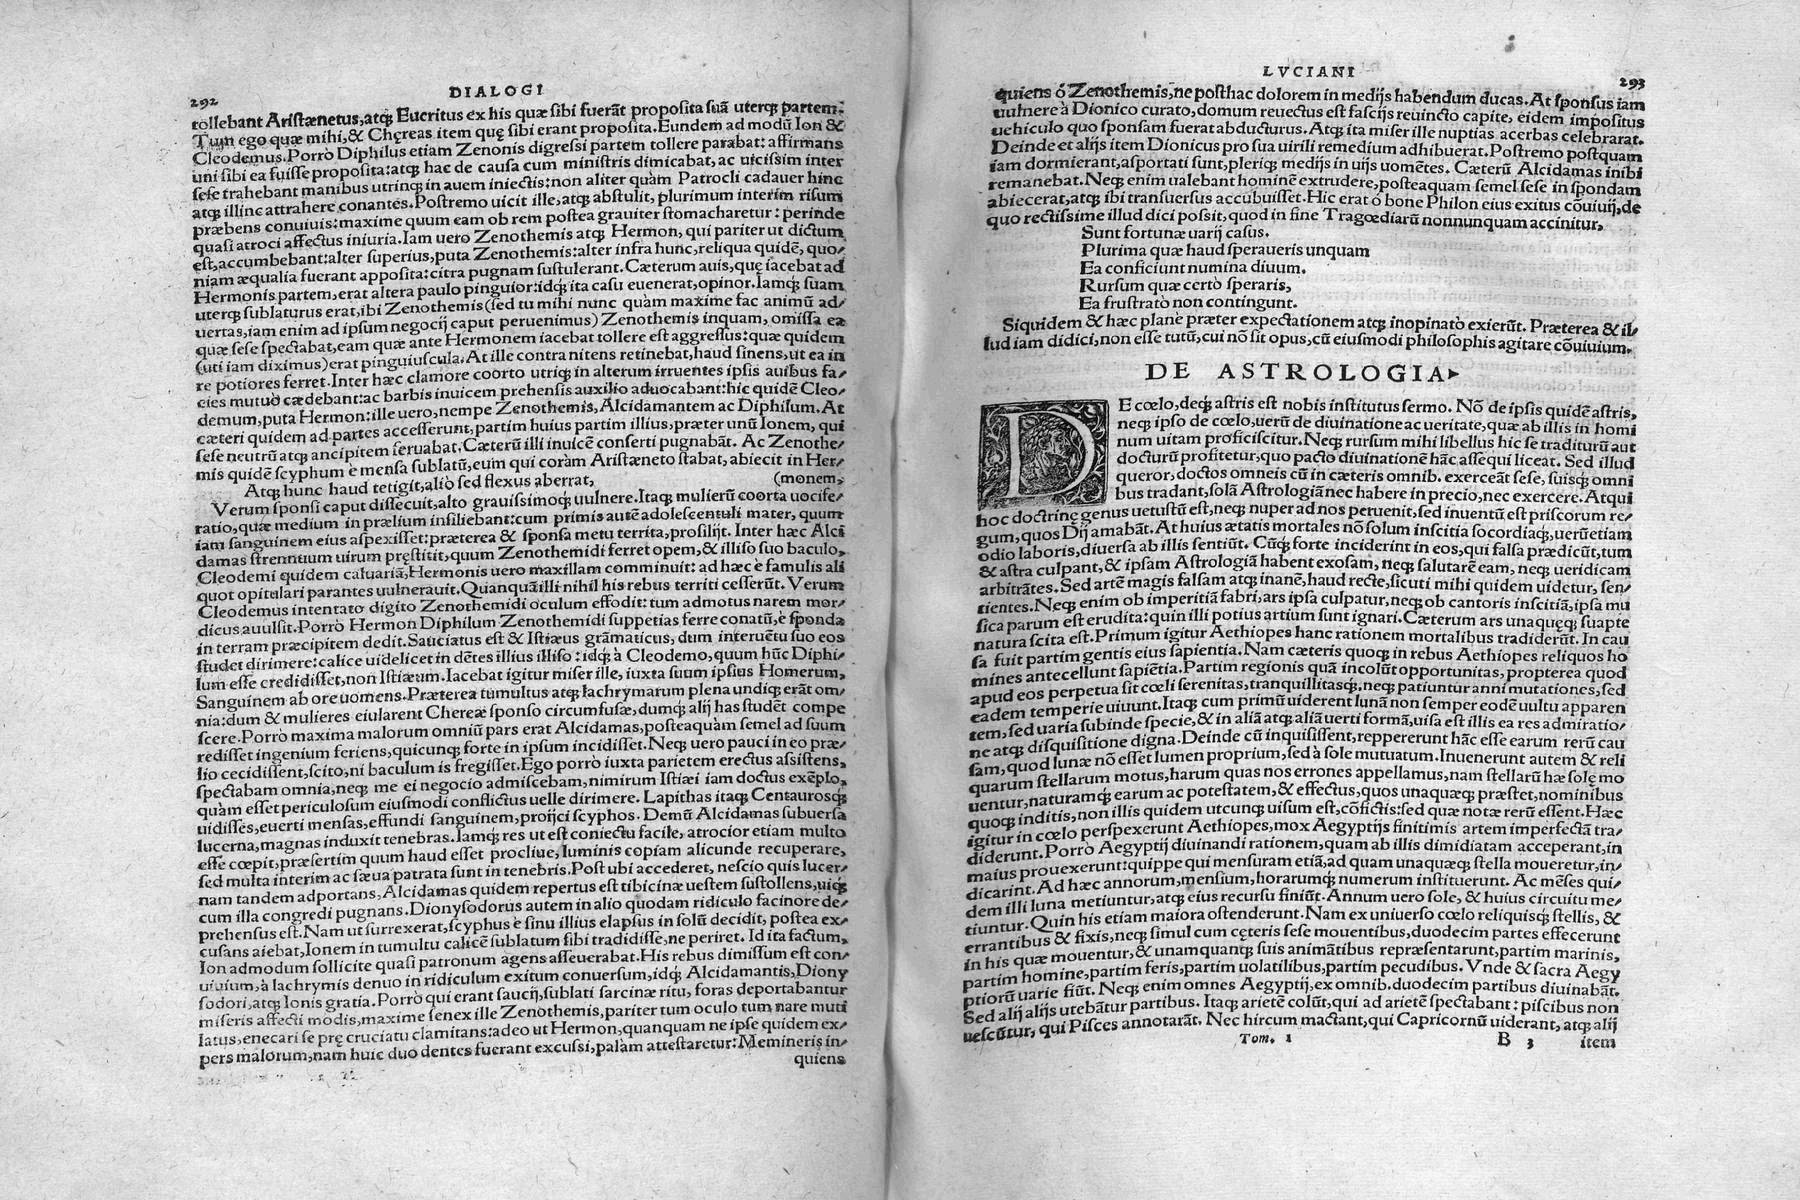 292
DIALOGI
tollebant Aristænetus, atq; Eucritus ex his quæ sibi fuerāt proposita suā uterq; partem.
Tum ego quæ mihi, & Chęreas item quę sibi erant proposita. Eundem ad modū Ion &
Cleodemus. Porrò Diphilus etiam Zenonis digressi partem tollere parabat: affirmans
uni sibi ea fuisse proposita: atq; hac de causa cum ministris dimicabat, ac uicissim inter
sese trahebant manibus utrinq; in auem iniectis: non aliter quàm Patrocli cadauer hinc
atq; illinc attrahere conantes. Postremo uicit ille, atq; abstulit, plurimum interim risum
præbens conuiuis: maxime quum eam ob rem postea grauiter stomacharetur: perinde
quasi atroci affectus iniuria. Iam uero Zenothemis atq; Hermon, qui pariter ut dictum
est, accumbebant: alter superius, puta Zenothemis: alter infra hunc, reliqua quidē, quo/
niam æqualia fuerant apposita: citra pugnam sustulerant. Cæterum auis, quę iacebat ad
Hermonis partem, erat altera paulo pinguior: idq; ita casu euenerat, opinor. Iamq; suam
uterq; sublaturus erat, ibi Zenothemis (sed tu mihi nunc quàm maxime fac animū ad/
uertas, iam enim ad ipsum negocij caput peruenimus) Zenothemis inquam, omissa ea
quæ sese spectabat, eam quæ ante Hermonem iacebat tollere est aggressus: quæ quidem
(uti iam diximus) erat pinguiuscula. At ille contra nitens retinebat, haud sinens, ut ea in
re potiores ferret. Inter hæc clamore coorto utriq; in alterum irruentes ipsis auibus fa/
cies mutuò cædebant: ac barbis inuicem prehensis auxilio aduocabant: hic quidē Cleo/
demum, puta Hermon: ille uero, nempe Zenothemis, Alcidamantem ac Diphilum. At
cæteri quidem ad partes accesserunt, partim huius partim illius, præter unū Ionem, qui
sese neutrū atq; ancipitem seruabat. Cæterū illi inuicē conserti pugnabāt. Ac Zenothe/
mis quidē scyphum è mensa sublatū, eum qui coràm Aristæneto stabat, abiecit in Her/
Atq; hunc haud tetigit, aliò sed flexus aberrat, (monem,
Verum sponsi caput dissecuit, alto grauissimoq; uulnere. Itaq; mulierū coorta uocife/
ratio, quæ medium in prælium insiliebant: cum primis autē adolescentuli mater, quum
iam sanguinem eius aspexisset: præterea & sponsa metu territa, prosilijt. Inter hæc Alci
damas strenuum uirum pręstitit, quum Zenothemidi ferret opem, & illiso suo baculo,
Cleodemi quidem caluariā, Hermonis uero maxillam comminuit: ad hæc è famulis ali
quot opitulari parantes uulnerauit. Quanquā illi nihil his rebus territi cesserūt. Verum
Cleodemus intentato digito Zenothemidi oculum effodit: tum admotus narem mor/
dicus auulsit. Porrò Hermon Diphilum Zenothemidi suppetias ferre conatū, è sponda
in terram præcipitem dedit. Sauciatus est & Istiæus grāmaticus, dum interuētu suo eos
studet dirimere: calice uidelicet in dētes illius illiso: idq; à Cleodemo, quum hūc Diphi/
lum esse credidisset, non Istiæum. Iacebat igitur miser ille, iuxta suum ipsius Homerum,
Sanguinem ab ore uomens. Præterea tumultus atq; lachrymarum plena undiq; erāt om/
nia: dum & mulieres eiularent Chereæ sponso circumfusæ, dumq; alij has studēt compe
scere. Porrò maxima malorum omniū pars erat Alcidamas, posteaquàm semel ad suum
redisset ingenium feriens, quicunq; forte in ipsum incidisset. Neq; uero pauci in eo præ/
lio cecidissent, scito, ni baculum is fregisset. Ego porrò iuxta parietem erectus assistens,
spectabam omnia, neq; me ei negocio admiscebam, nimirum Istiæi iam doctus exēplo,
quàm esset periculosum eiusmodi conflictus uelle dirimere. Lapithas itaq; Centaurosq;
uidisses, euerti mensas, effundi sanguinem, proijci scyphos. Demū Alcidamas subuersa
lucerna, magnas induxit tenebras. Iamq; res ut est coniectu facile, atrocior etiam multo
esse cœpit, præsertim quum haud esset procliue, luminis copiam alicunde recuperare,
sed multa interim ac sæua patrata sunt in tenebris. Post ubi accederet, nescio quis lucer/
nam tandem adportans, Alcidamas quidem repertus est tibicinæ uestem sustollens, uiq;
cum illa congredi pugnans. Dionysodorus autem in alio quodam ridiculo facinore de/
prehensus est. Nam ut surrexerat, scyphus è sinu illius elapsus in solū decidit, postea ex/
cusans aiebat, Ionem in tumultu calicē sublatum sibi tradidisse, ne periret. Id ita factum,
Ion admodum sollicite quasi patronum agens asseuerabat. His rebus dimissum est con/
uiuium, à lachrymis denuo in ridiculum exitum conuersum, idq; Alcidamantis, Diony
sodori, atq; Ionis gratia. Porrò qui erant saucij, sublati sarcinæ ritu, foras deportabantur
miseris affecti modis, maxime senex ille Zenothemis, pariter tum oculo tum nare muti
latus, enecari se prę cruciatu clamitans: adeo ut Hermon, quanquam ne ipse quidem ex/
pers malorum, nam huic duo dentes fuerant excussi, palàm attestaretur: Memineris in/
quiens
LVCIANI
293
quiens ô Zenothemis, ne posthac dolorem in medijs habendum ducas. At sponsus iam
uulnere à Dionico curato, domum reuectus est fascijs reuincto capite, eidem impositus
uehiculo quo sponsam fuerat abducturus. Atq; ita miser ille nuptias acerbas celebrarat.
Deinde et alijs item Dionicus pro sua uirili remedium adhibuerat. Postremo postquam
iam dormierant, asportati sunt, pleriq; medijs in uijs uomētes. Cæterū Alcidamas inibi
remanebat. Neq; enim ualebant hominē extrudere, posteaquam semel sese in spondam
abiecerat, atq; ibi transuersus accubuisset. Hic erat ô bone Philon eius exitus cōuiuij, de
quo rectissime illud dici possit, quod in fine Tragœdiarū nonnunquam accinitur,
Sunt fortunæ uarij casus.
Plurima quæ haud speraueris unquam
Ea conficiunt numina diuum.
Rursum quæ certò speraris,
Ea frustratò non contingunt.
Siquidem & hæc planè præter expectationem atq; inopinatò exierūt. Præterea & il/
lud iam didici, non esse tutū, cui nō sit opus, cū eiusmodi philosophis agitare cōuiuium.
DE ASTROLOGIA
DE cœlo, deq; astris est nobis institutus sermo. Nō de ipsis quidē astris,
neq; ipso de cœlo, uerū de diuinatione ac ueritate, quæ ab illis in homi
num uitam proficiscitur. Neq; rursum mihi libellus hic se traditurū aut
docturū profitetur, quo pacto diuinationē hāc assequi liceat. Sed illud
queror, doctos omneis cū in cæteris omnib. exerceāt sese, suisq; omni
bus tradant, solā Astrologiā nec habere in precio, nec exercere. Atqui
hoc doctrinę genus uetustū est, neq; nuper ad nos peruenit, sed inuentū est priscorum re/
gum, quos Dij amabāt. At huius ætatis mortales nō solum inscitia socordiaq;, uerūetiam
odio laboris, diuersa ab illis sentiūt. Cūq; forte inciderint in eos, qui falsa prædicūt, tum
& astra culpant, & ipsam Astrologiā habent exosam, neq; salutarē eam, neq; ueridicam
arbitrātes. Sed artē magis falsam atq; inanē, haud recte, sicuti mihi quidem uidetur, sen/
tientes. Neq; enim ob imperitiā fabri, ars ipsa culpatur, neq; ob cantoris inscitiā, ipsa mu
sica parum est erudita: quin illi potius artium sunt ignari. Cæterum ars unaquęq; suapte
natura scita est. Primum igitur Aethiopes hanc rationem mortalibus tradiderūt. In cau
sa fuit partim gentis eius sapientia. Nam cæteris quoq; in rebus Aethiopes reliquos ho
mines antecellunt sapiētia. Partim regionis quā incolūt opportunitas, propterea quod
apud eos perpetua sit cœli serenitas, tranquillitasq;, neq; patiuntur anni mutationes, sed
eadem temperie uiuunt. Itaq; cum primū uiderent lunā non semper eodē uultu apparen
tem, sed uaria subinde specie, & in aliā atq; aliā uerti formā, uisa est illis ea res admiratio/
ne atq; disquisitione digna. Deinde cū inquisissent, reppererunt hāc esse earum rerū cau
sam, quod lunæ nō esset lumen proprium, sed à sole mutuatum. Inuenerunt autem & reli
quarum stellarum motus, harum quas nos errones appellamus, nam stellarū hæ solę mo
uentur, naturamq; earum ac potestatem, & effectus, quos unaquæq; præstet, nominibus
quoq; inditis, non illis quidem utcunq; uisum est, cōfictis: sed quæ notæ rerū essent. Hæc
igitur in cœlo perspexerunt Aethiopes, mox Aegyptijs finitimis artem imperfectā tra/
diderunt. Porrò Aegyptij diuinandi rationem, quam ab illis dimidiatam acceperant, in
maius prouexerunt: quippe qui mensuram etiā, ad quam unaquæq; stella moueretur, in/
dicarint. Ad hæc annorum, mensium, horarumq; numerum instituerunt. Ac mēses qui/
dem illi luna metiuntur, atq; eius recursu finiūt. Annum uero sole, & huius circuitu me/
tiuntur. Quin his etiam maiora ostenderunt. Nam ex uniuerso cœlo reliquisq; stellis, &
errantibus & fixis, neq; simul cum cęteris sese mouentibus, duodecim partes effecerunt
in his quæ mouentur, & unamquanq; suis animātibus repræsentarunt, partim marinis,
partim homine, partim feris, partim uolatilibus, partim pecudibus. Vnde & sacra Aegy
ptiorū uarie fiūt. Neq; enim omnes Aegyptij, ex omnib. duodecim partibus diuinabāt.
Sed alij alijs utebātur partibus. Itaq; arietē colūt, qui ad arietē spectabant: piscibus non
uescūtur, qui Pisces annotarāt. Nec hircum mactant, qui Capricornū uiderant, atq; alij
Tom. 1 B 3 item